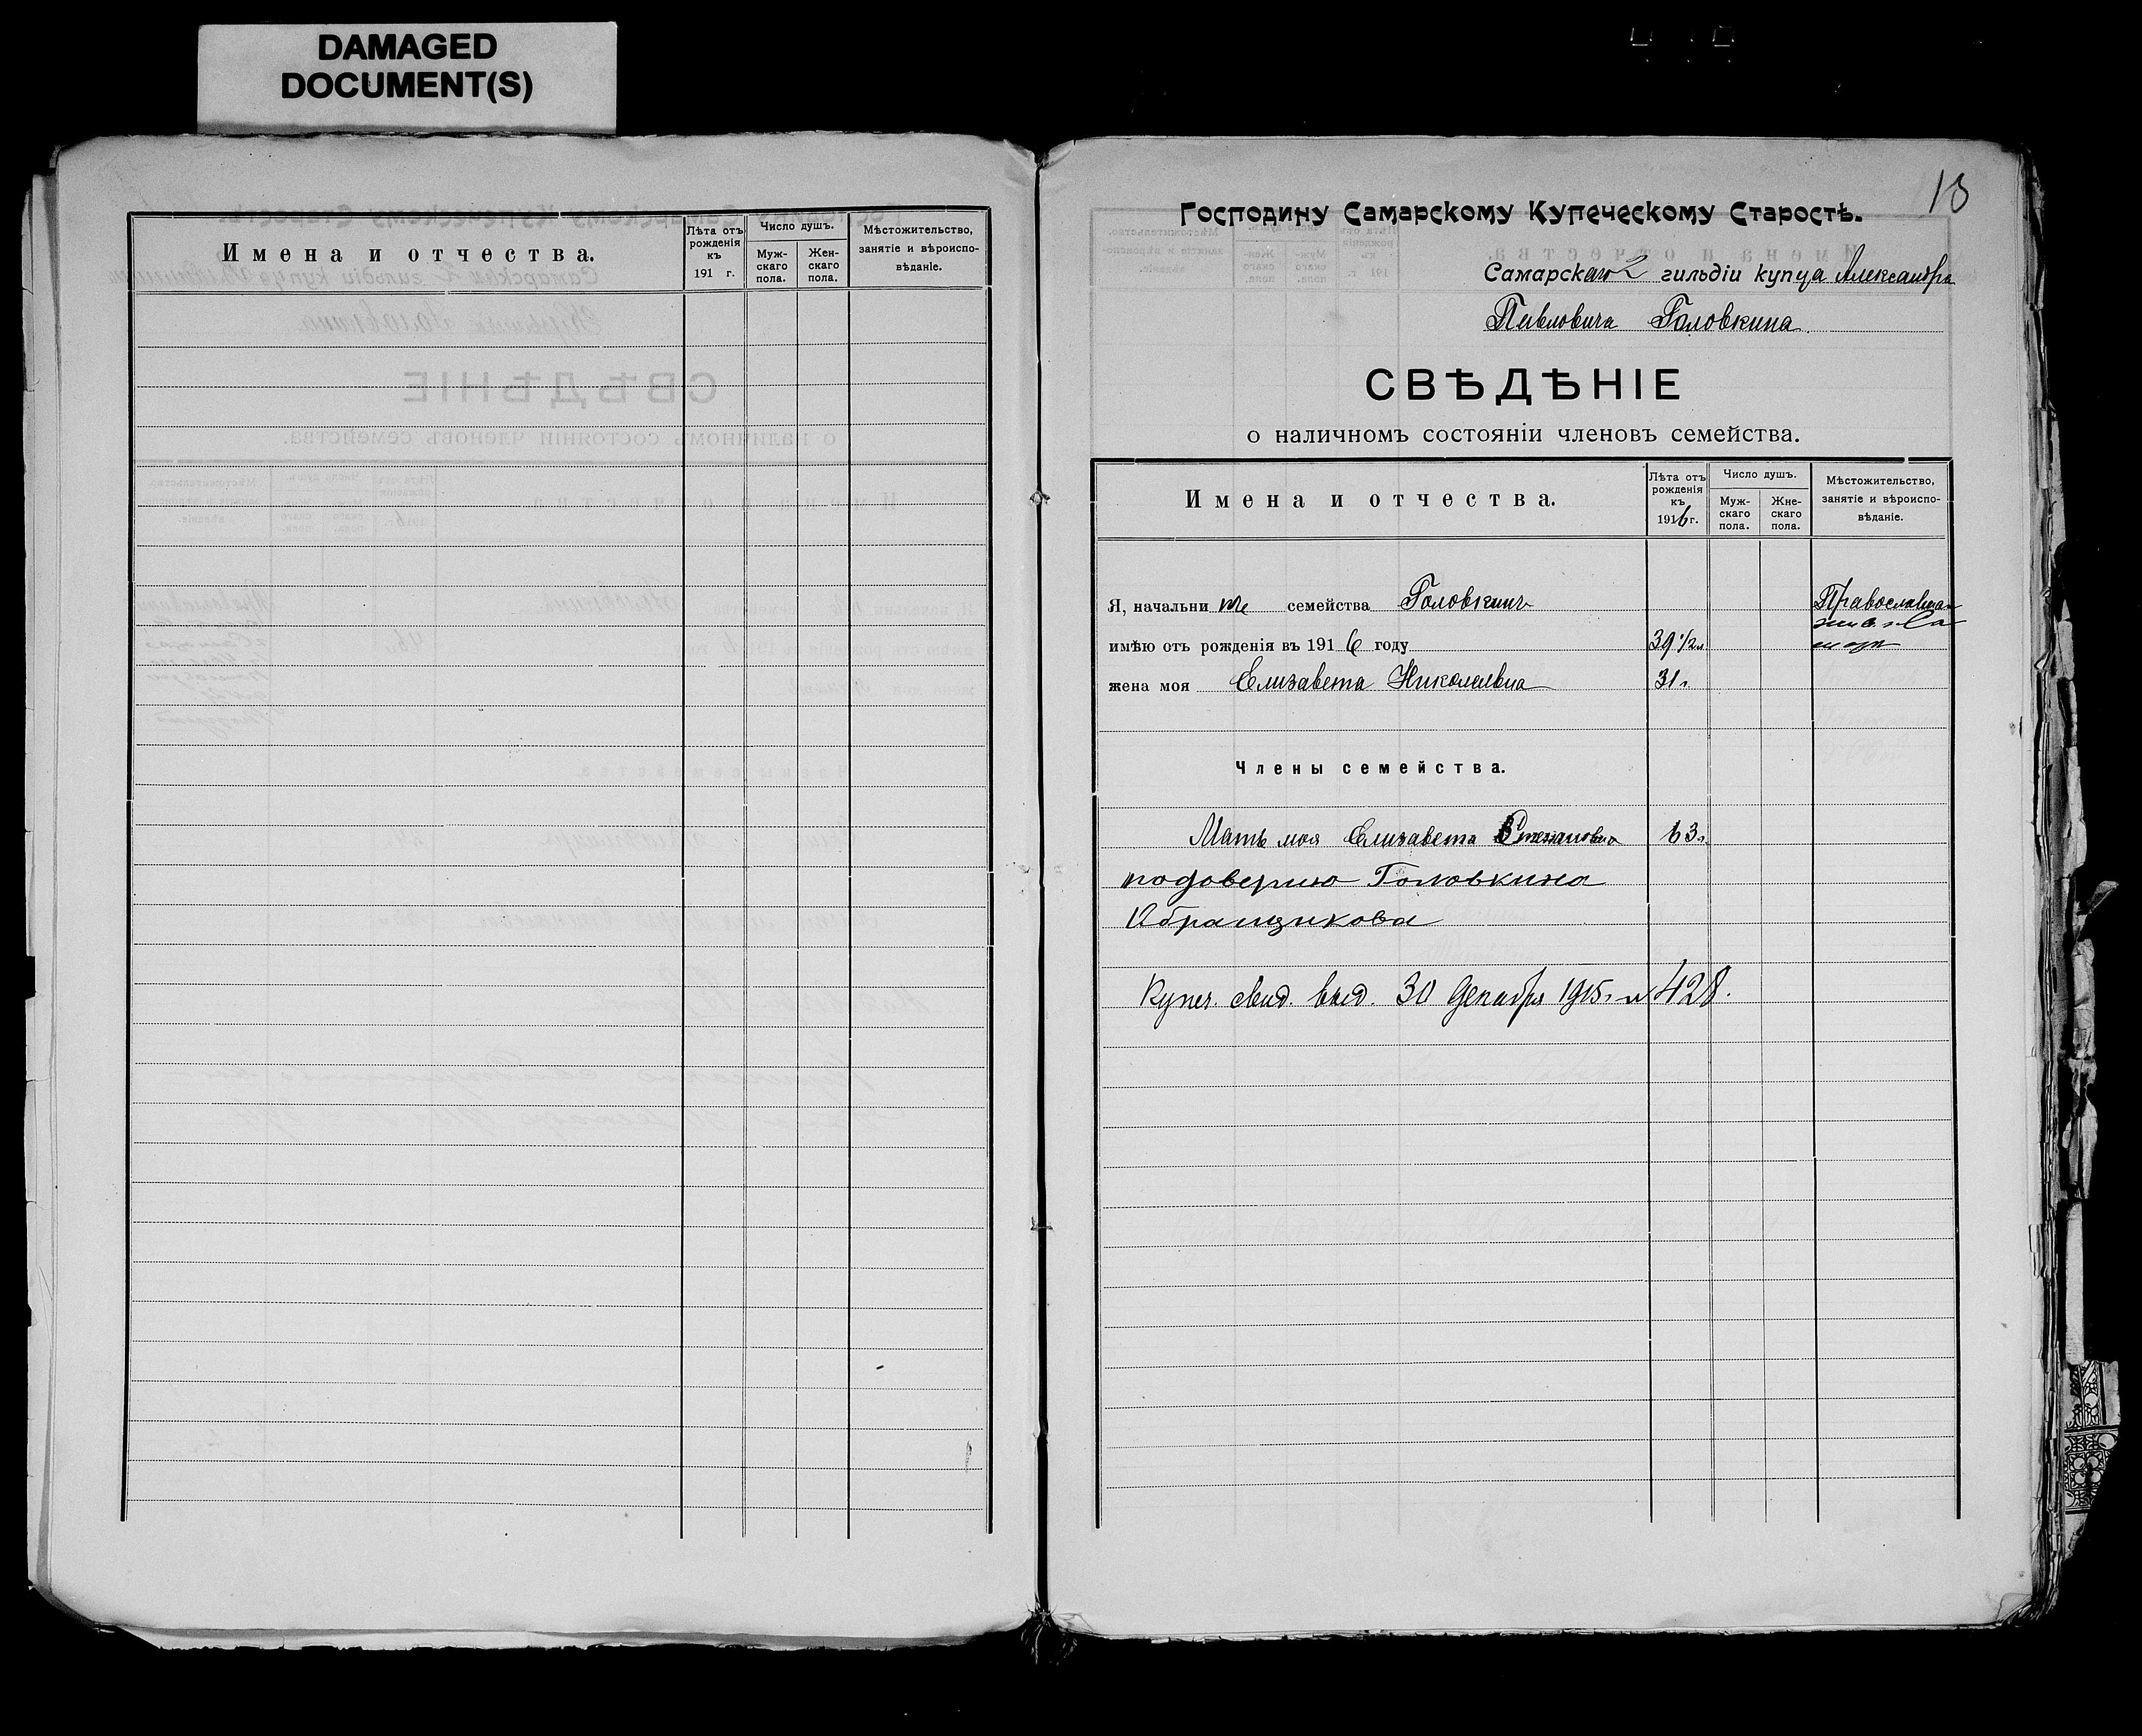 DAMAGED
DOCUMENT(S)
Имена и отчества.
Лѣта отъ рожденія къ 191 г.
Число душъ.
Муж-скаго пола.
Жен-скаго пола.
Мѣстожительство, занятіе и вѣроиспо-вѣданіе.
13
Господину Самарскому Купеческому Старостѣ.
Самарскаго 2 гильдіи купца Александра
Павловича Головкина.
СВѢДѢНІЕ
о наличномъ состояніи членовъ семейства.
Имена и отчества.
Лѣта отъ рожденія къ 1916 г.
Число душъ.
Муж-скаго пола.
Жне-скаго пола.
Мѣстожительство, занятіе и вѣроиспо-вѣданіе.
Я, начальни семейства Головкинъ Православная
имѣю отъ рожденія въ 1916 году 39 1/2 л
жена моя Елизавета Николаевна 31 г.
Члены семейства.
Мать моя Елизавета Степановна 63 г.
по доверию Головкина
Абрамщикова
Купеч. свид. выд. 30 Декабря 1915 г. № 428.